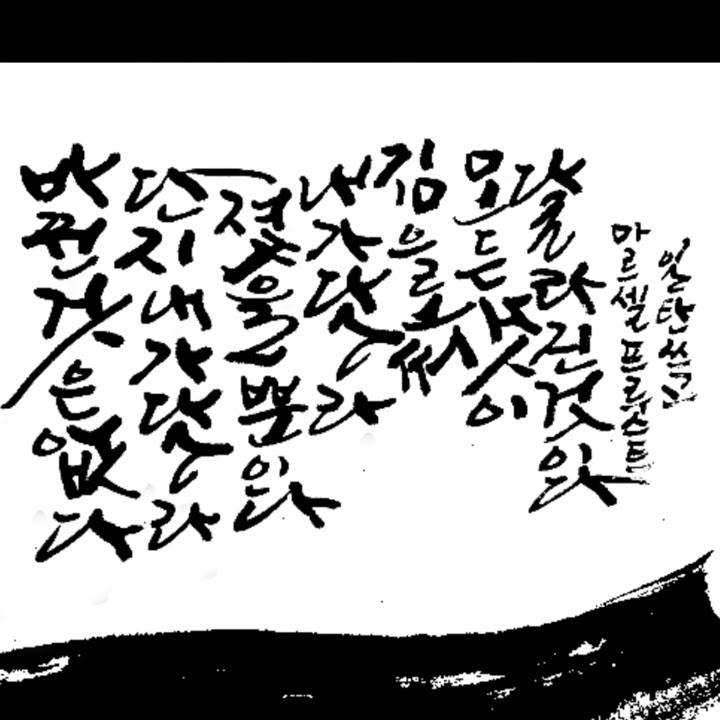 바뀐것은없다
단지내가달라
졌을뿐이다
내가달라
짐으로써
모든것이
달라진것이다
마르셀프루스트
일단쓰고